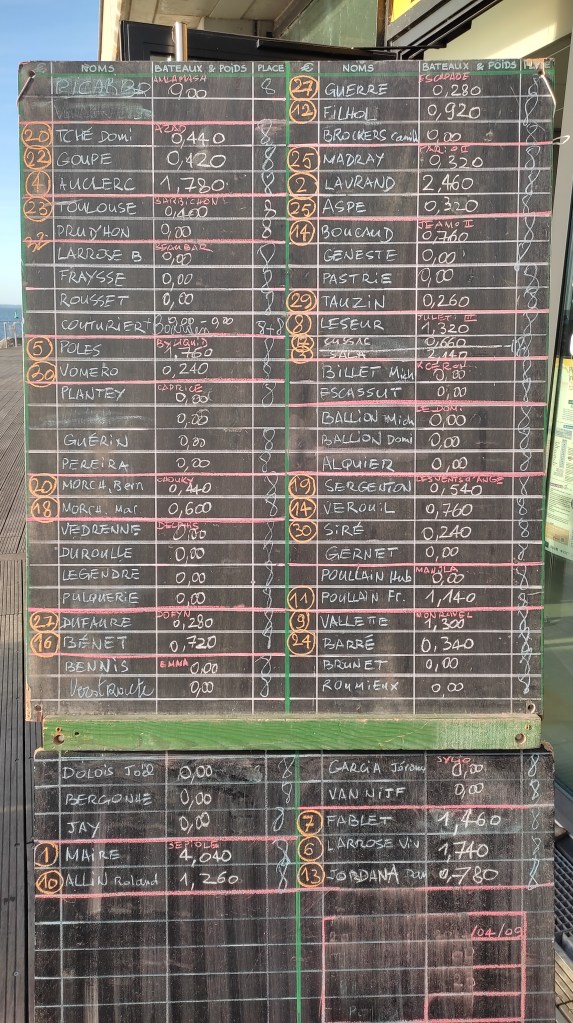 NOMS BATEAUX & POIDS PLACE
RICARD 0,00 8
20 TCHÉ DOMI AZAO 0,440 8
22 GOUPE 0,420 8
4 AUCLERC 1,780 8
23 TOULOUSE BARBICHON 0,400 8
PRUD'HON 0,00 8
32 LARROSE B SEGUBAR 0,00 8
FRAYSSE 0,00 8
ROUSSET 0,00 8
COUTURIER + 0,00 - 0,00 8+8
5 POLES 1,760 8
30 VOMERO 0,240 8
PLANTEY CAPRICE 0,00
0,00
GUÉRIN 0,00 8
PEREIRA 0,00 8
20 MORCH. Bern CHOUKY 0,440 8
18 MORCH. Mar 0,600 8
VEDRENNE 0,00 8
DUROULLE 0,00 8
LEGENDRE 0,00 8
PULQUERIE 0,00 8
27 DUFAURE 0,280 8
16 BÉNET 0,720 8
BENNIS EMMA 0,00 8
Verstraete 0,00 8
€ NOMS BATEAUX & POIDS
27 GUERRE ESCAPADE 0,280 8
12 FILHOL 0,920 8
BROCKERS Camill 0,00 8
25 MADRAY PABLO II 0,320 8
2 LAVRAND 2,460 8
25 ASPE 0,320 8
14 BOUCAUD JEAMO II 0,760 8
GENESTE 0,00 8
PASTRIE 0,00 8
29 TAUZIN 0,260 8
8 LESEUR JULETI III 1,320 8
CUSSAC 0,660
3 SALA 2,140
BILLET Mich 0,00 8
ESCASSUT 0,00 8
BALLION Mich LE DOMI 0,00 8
BALLION Domi 0,00 8
ALQUIER 0,00 8
19 SERGENTON LES VENTS D'ANGE 0,540 8
14 VEROUIL 0,760 8
30 SIRÉ 0,240 8
GERNET 0,00 8
POULLAIN Hub MANOLA 0,00 8
11 POULLAIN Fr. 1,140 8
9 VALLETTE 1,300 8
24 BARRÉ 0,340 8
BRUNET 0,00 8
ROUMIEUX 0,00 8
DOLOIS Joël 0,00 8
BERGONHE 0,00 8
JAY 0,00 8
1 MAIRE SEPIOLE 4,040 8
10 ALLIN Roland 1,260 8
GARCIA Jéromy SYLIO 0,00 8
VAN NIJF 0,00 8
7 FABLET 1,460 8
6 LARROSE Viv 1,740 8
13 JORDANA 0,780 8
/04/09